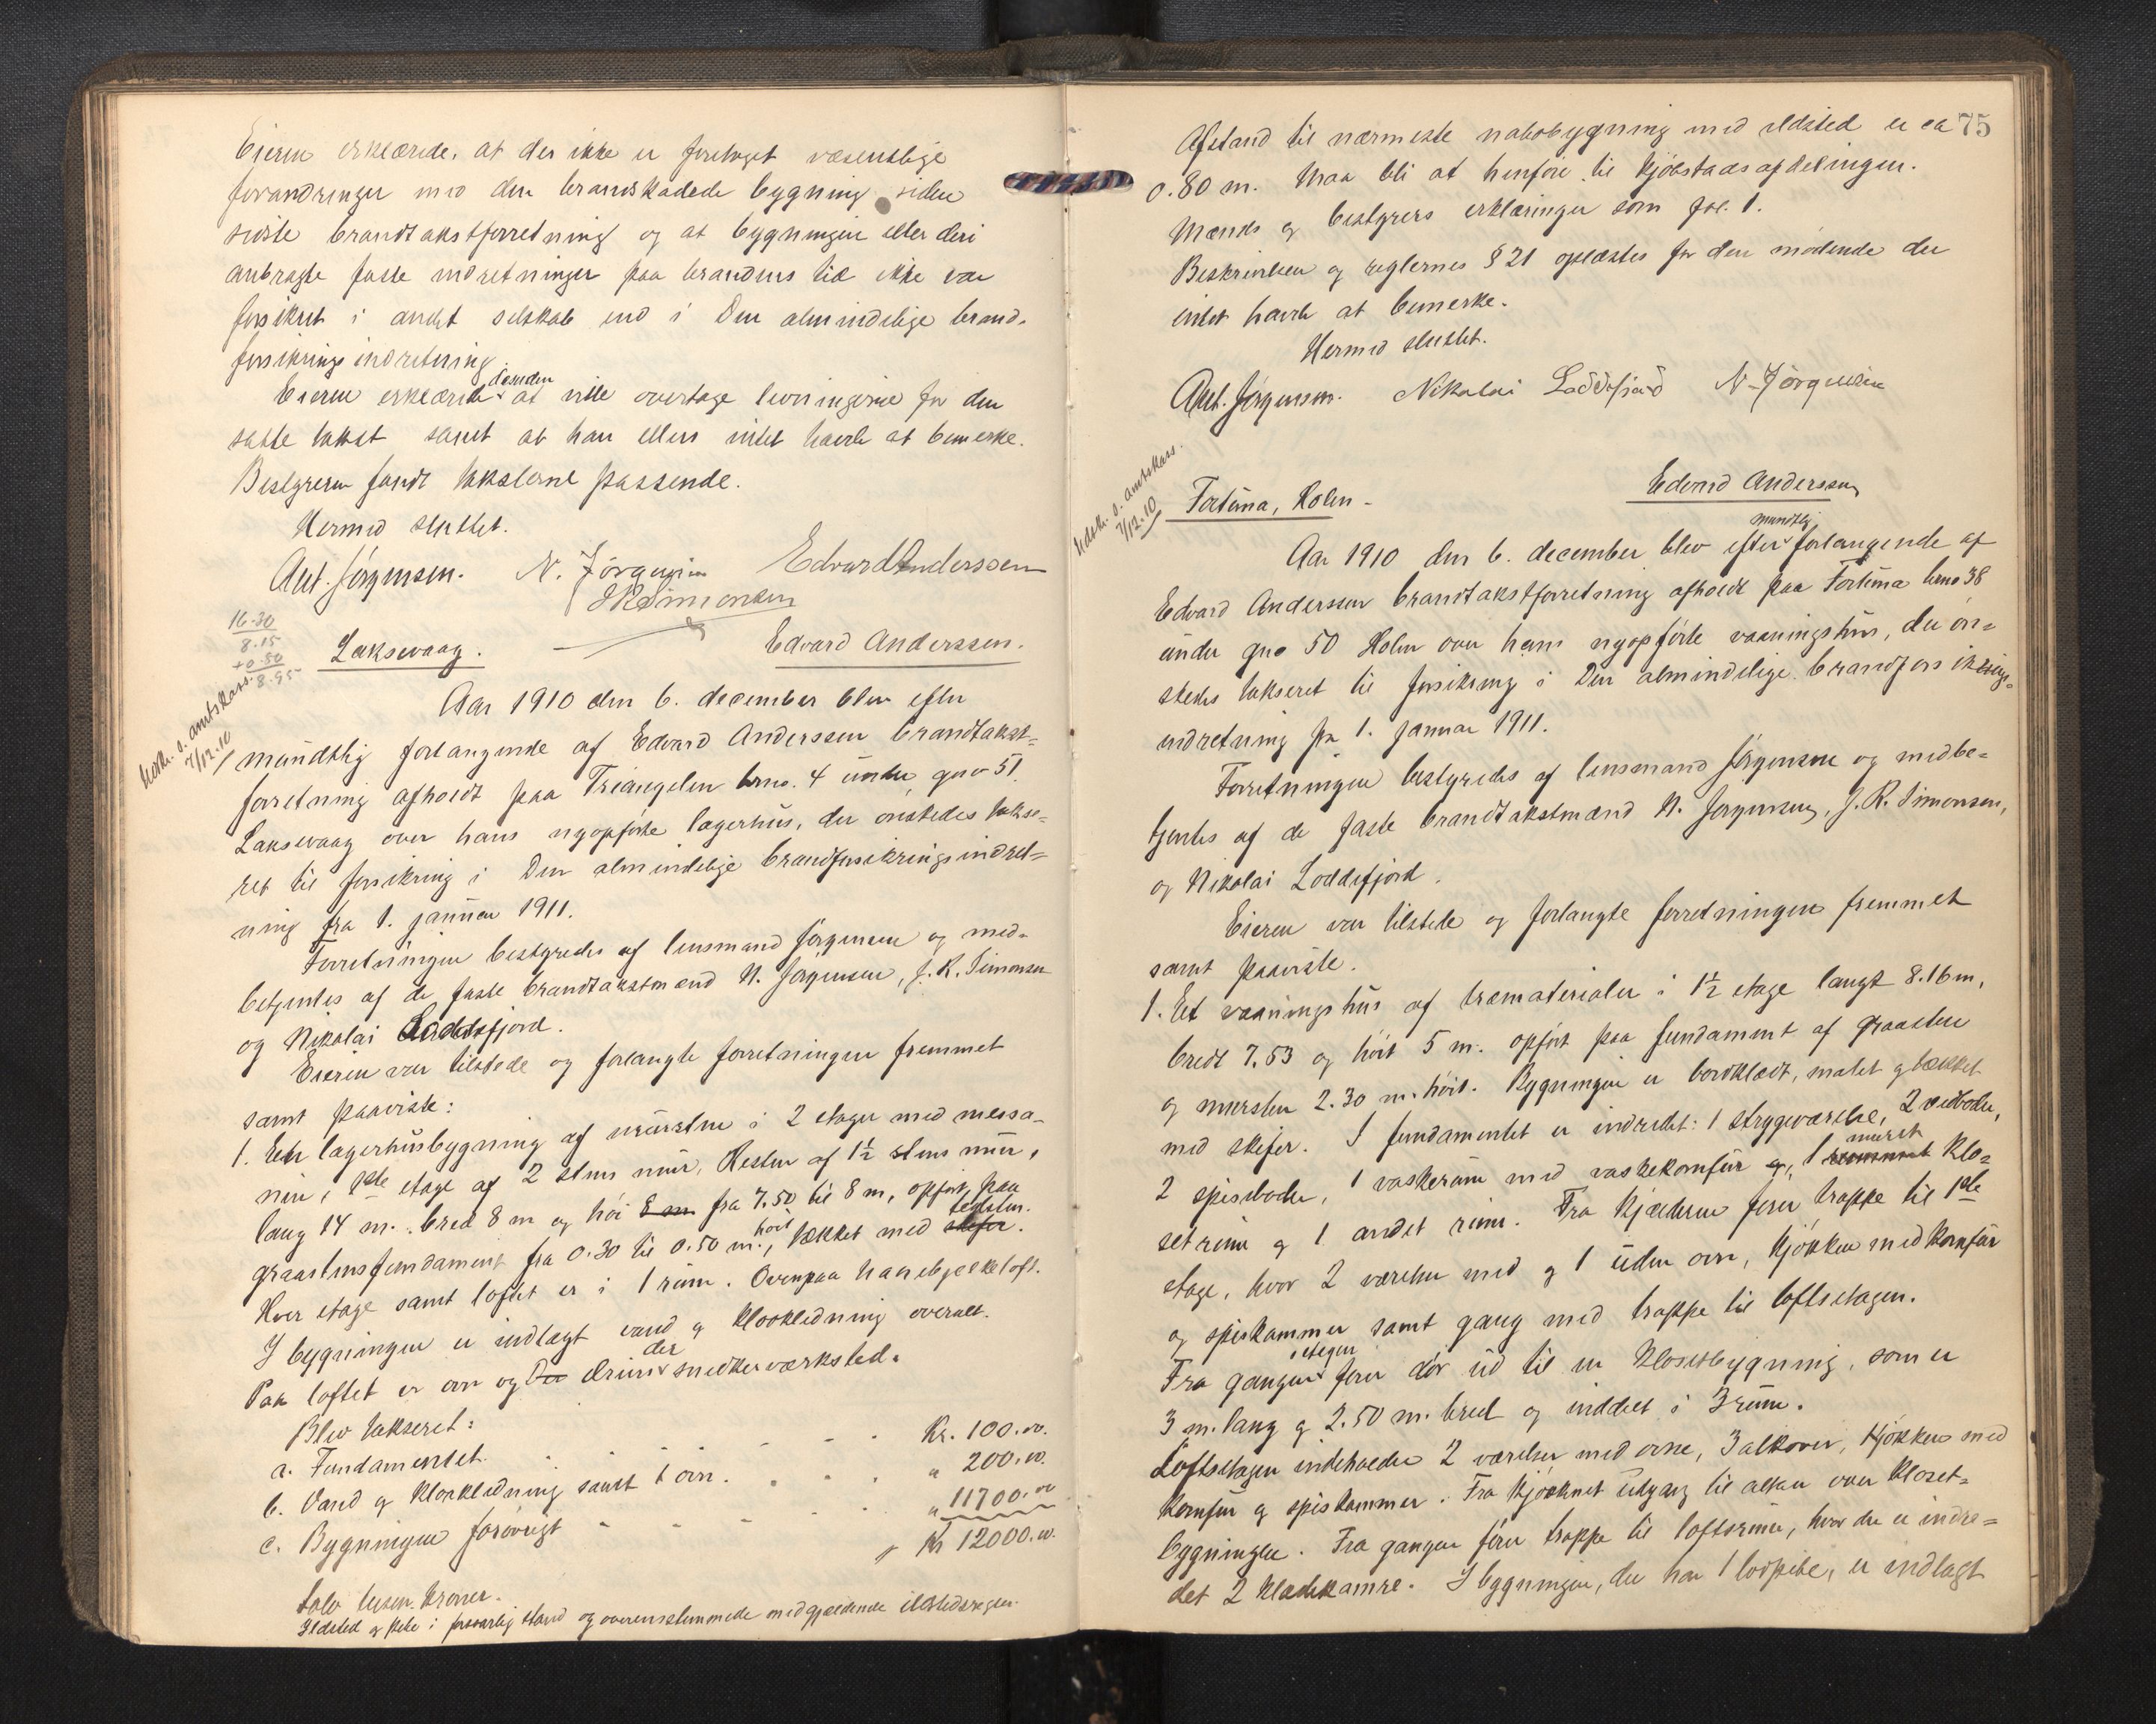 Eieren erklærede, at der ikke er foretaget væsentlige
forandringer med den brandskadede bygning siden
sidste brandtakstforretning og at bygningen eller deri
anbragte faste indretninger paa brandens tid ikke var
forsikret i andet selskab end i Den almindelige brand-
forsikringsindretning.
Eieren erklærede desuden at ville overtage levningerne for den
satte takst samt at han ellers intet havde at bemerke.
Bestyreren fandt taksterne passende.
Hermed sluttet.
Ant. Jørgensen. N. Jörgensen Edvard Anderssen
J R Simonsen
16.30
8.15
+0.80
8.95
Laksevaag. Edvard Anderssen.
Udskr. s. amtskass. 7/12.10
Aar 1910 den 6. december blev efter
mundtlig forlangende af Edvard Anderssen brandtakst=
forretning afholdt paa Triangelen brno. 4 under gno 51
Laksevaag over hans nyopførte lagerhus, der ønskedes takse=
ret til forsikring i Den almindelige brandforsikringsindret=
ning fra 1. januar 1911.
Forretningen bestyredes af lensmand Jørgensen og med-
betjentes af de faste brandtakstmænd N. Jørgensen, J. R. Simonsen
og Nikolai Loddefjord.
Eieren var tilstede og forlangte forretningen fremmet
samt paaviste:
1. En lagerhusbygning af mursten i 2 etager med messa-
nin, 1ste etage af 2 stens mur, Resten af 1½ stens mur,
lang 14 m. bred 8 m og høi 8 m fra 7.50 til 8 m, opført paa
graastensfundament fra 0.30 til 0.50 m. høit, tækket med skifer. teglsten.
Hver etage samt loftet er i 1 rum. Ovenpaa hanebjelkeloft.
I bygningen er indlagt vand og kloakledning overalt.
Paa loftet er ovn og Der der drives snedkerværksted.
Blev takseret:
a. Fundamentet. Kr. 100.00.
b. Vand og kloakledning samt 1 ovn. " 200.00.
c. Bygningen forøvrigt " 11700.00
Kr 12000.00.
tolv tusen kroner.
Ildsted og pibe i forsvarlig stand og overensstemmede med gjældende ildstedsregler.
75
Afstand til nærmeste nabobygning med ildsted er ca
0.80 m. Maa bli at henføre til kjøbstadsafdelingen.
Mænds og bestyrers erklæringer som fol. 1.
Beskrivelsen og reglernes § 21 oplæstes for den mødende der
intet havde at bemerke.
Hermed sluttet.
Ant. Jørgensen. Nikolai Loddefjord N. Jörgensen
Udskr. s. amtskass. 7/12.10
Fortuna, Holen - Edvard Anderssen
Aar 1910 den 6. december blev efter mundtlig forlangende af
Edvard Anderssen brandtakstforretning afholdt paa Fortuna brno 38
under gno 50 Holen over hans nyopførte vaaningshus, der øn=
skedes takseret til forsikring i Den almindelige brandforsikrings-
indretning fra 1. januar 1911.
Forretningen bestyredes af lensmand Jørgensen og medbe=
tjentes af de faste brandtakstmænd N. Jørgensen, J. R. Simonsen,
og Nikolai Loddefjord.
Eieren var tilstede og forlangte forretningen fremmet
samt paaviste.
1. Et vaaningshus af træmaterialer i 1½ etage langt 8.16 m,
bredt 7.53 og høit 5 m. opført paa fundament af graasten
og mursten 2.30 m. høit. Bygningen er bordklædt, malet og tækket
med skifer. I fundamentet er indredet: 1 strygeværelse, 2 vedboder,
2 spiseboder, 1 vaskerum med vaskekomfur og, 1 muret klo=
setrum og 1 andet rum. Fra kjælderen fører trappe til 1ste
etage, hvor 2 værelser med og 1 uden ovn, kjøkken med komfur
og spiskammer samt gang med trappe til loftsetagen.
Fra gangen i etagen fører dør ud til en klosetbygning, som er
3 m. lang og 2.50 m. bred og inddelt i 3 rum.
Loftsetagen indeholder 2 værelser med ovne, 3 alkover, kjøkken med
komfur og spiskammer. Fra kjøkkenet udgang til altan over kloset-
bygningen. Fra gangen fører trappe til loftsrum, hvor der er indre=
det 2 klædekamre. I bygningen, der har 1 lodpibe, er indlagt